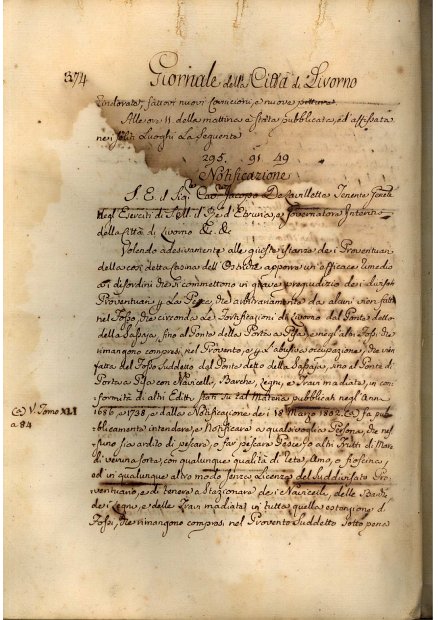 374 Giornale della Città di Livorno
rindorate, fattovi nuovi Cornicioni, e nuove pitture.
Alle ore 11 della mattina è stata pubblicata, ed affissata
nei soliti Luoghi La Seguente
295. 91 49
Notificazione
S. E. il Sig. Cav. Jacopo De Lavillette Tenente
Negl' Eserciti di S. M. il Re d' Etruria, e Governatore Interino
della Città di Livorno &c. &c.
Volendo adesivamente alle giuste istanze dei Proventuari
della così detta opporre un' efficace rimedio
ai disordini che si commettono in grave pregiudizio dei
Proventuari La Pesca, che arbitrariamente da alcuni vien fatta
nel Fosso, che circonda Le Fortificazioni di Livorno dal Ponte detto
della Sassaja, fino al Ponte della Porta a Pisa, e negl' altri Fossi, che
rimangono compresi nel Provento, e l' abusiva occupazione, che vien
fatta del Fosso Suddetto dal Ponte detto della Sassaja, fino al Ponte di
Porta a Pisa con Navicelli, Barche, Legni, e Travi madiata, in con
formità di altri Editti stati su tal materia pubblicati negl' Anni
(a) V. Tomo XLI 1686 e 1738, e dalla Notificazione de' 18 Marzo 1802. (a) fa pub
a 84 blicamente intendere, e Notificare a qualsivoglia Persona, che nes
suno sia ardito di pescare, o far pescare Pesce, o altri Frutti di Mare
di veruna sorta, con qualunque qualità di Rete, Amo, o fioscina,
ed in qualunque altro modo senza Licenza del Suddivisato Pro
ventuario, e di tenere a Stazionare dei Navicelli, delle Barche,
dei Legni, e delle Travi madiata, in tutta quella estensione di
Fossi, che rimangono compresi nel Provento Suddetto sotto pena